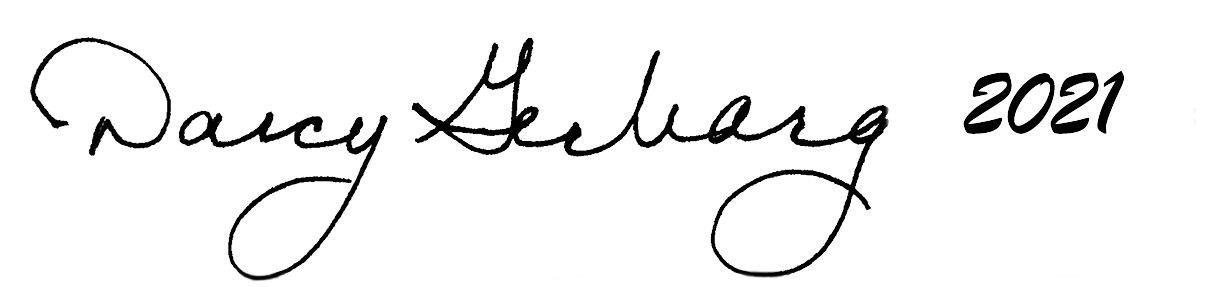 Darcy Gerbarg 2021